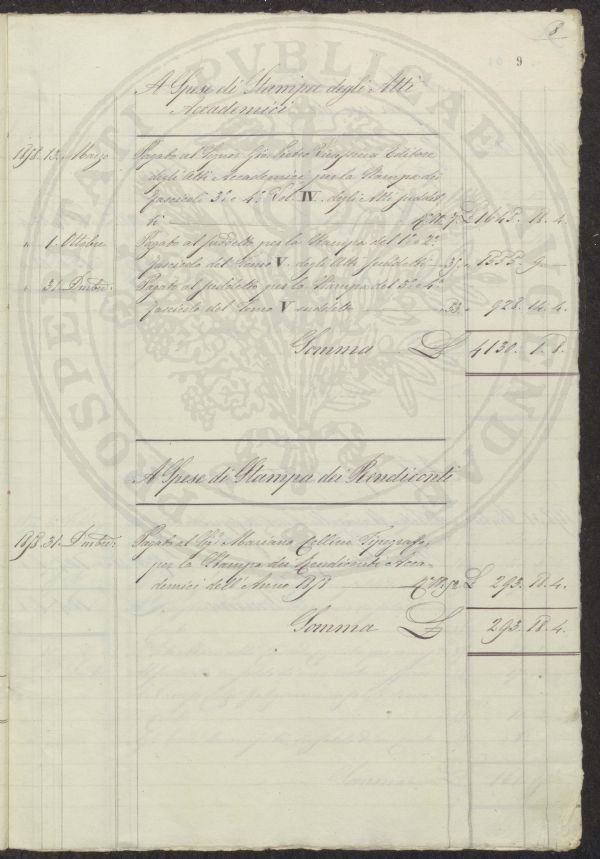 8
9
A Spese di Stampa degli Atti
Accademici
13. Marzo Pagato al Signor Gio: Pietro Editore
degli Atti Accademici per la Stampa dei
fascicoli 3.º e 4.º Vol. IV. degli Atti suddet-
ti £ 1645. 18. 4.
" 1. Ottobre Pagato al suddetto per la Stampa del 1.º e 2.º
fascicolo del Tomo V. degli Atti suddetti 9.
" 31. Dmbre: Pagato al suddetto per la Stampa del 3.º e 4.º
fascicolo del Tomo V suddetto 53. " 928. 14. 4.
Somma £ 4130. 1. 8.
A Spese di Stampa dei Rendiconti
31. Dmbre: Pagato al Sigr Mariano Cellini Tipografo,
per la Stampa dei Rendiconti Acca-
demici dell'Anno £ 293. 18. 4.
Somma £ 293. 18. 4.
PROSPERITATI PUBLICAE AUGENDAE